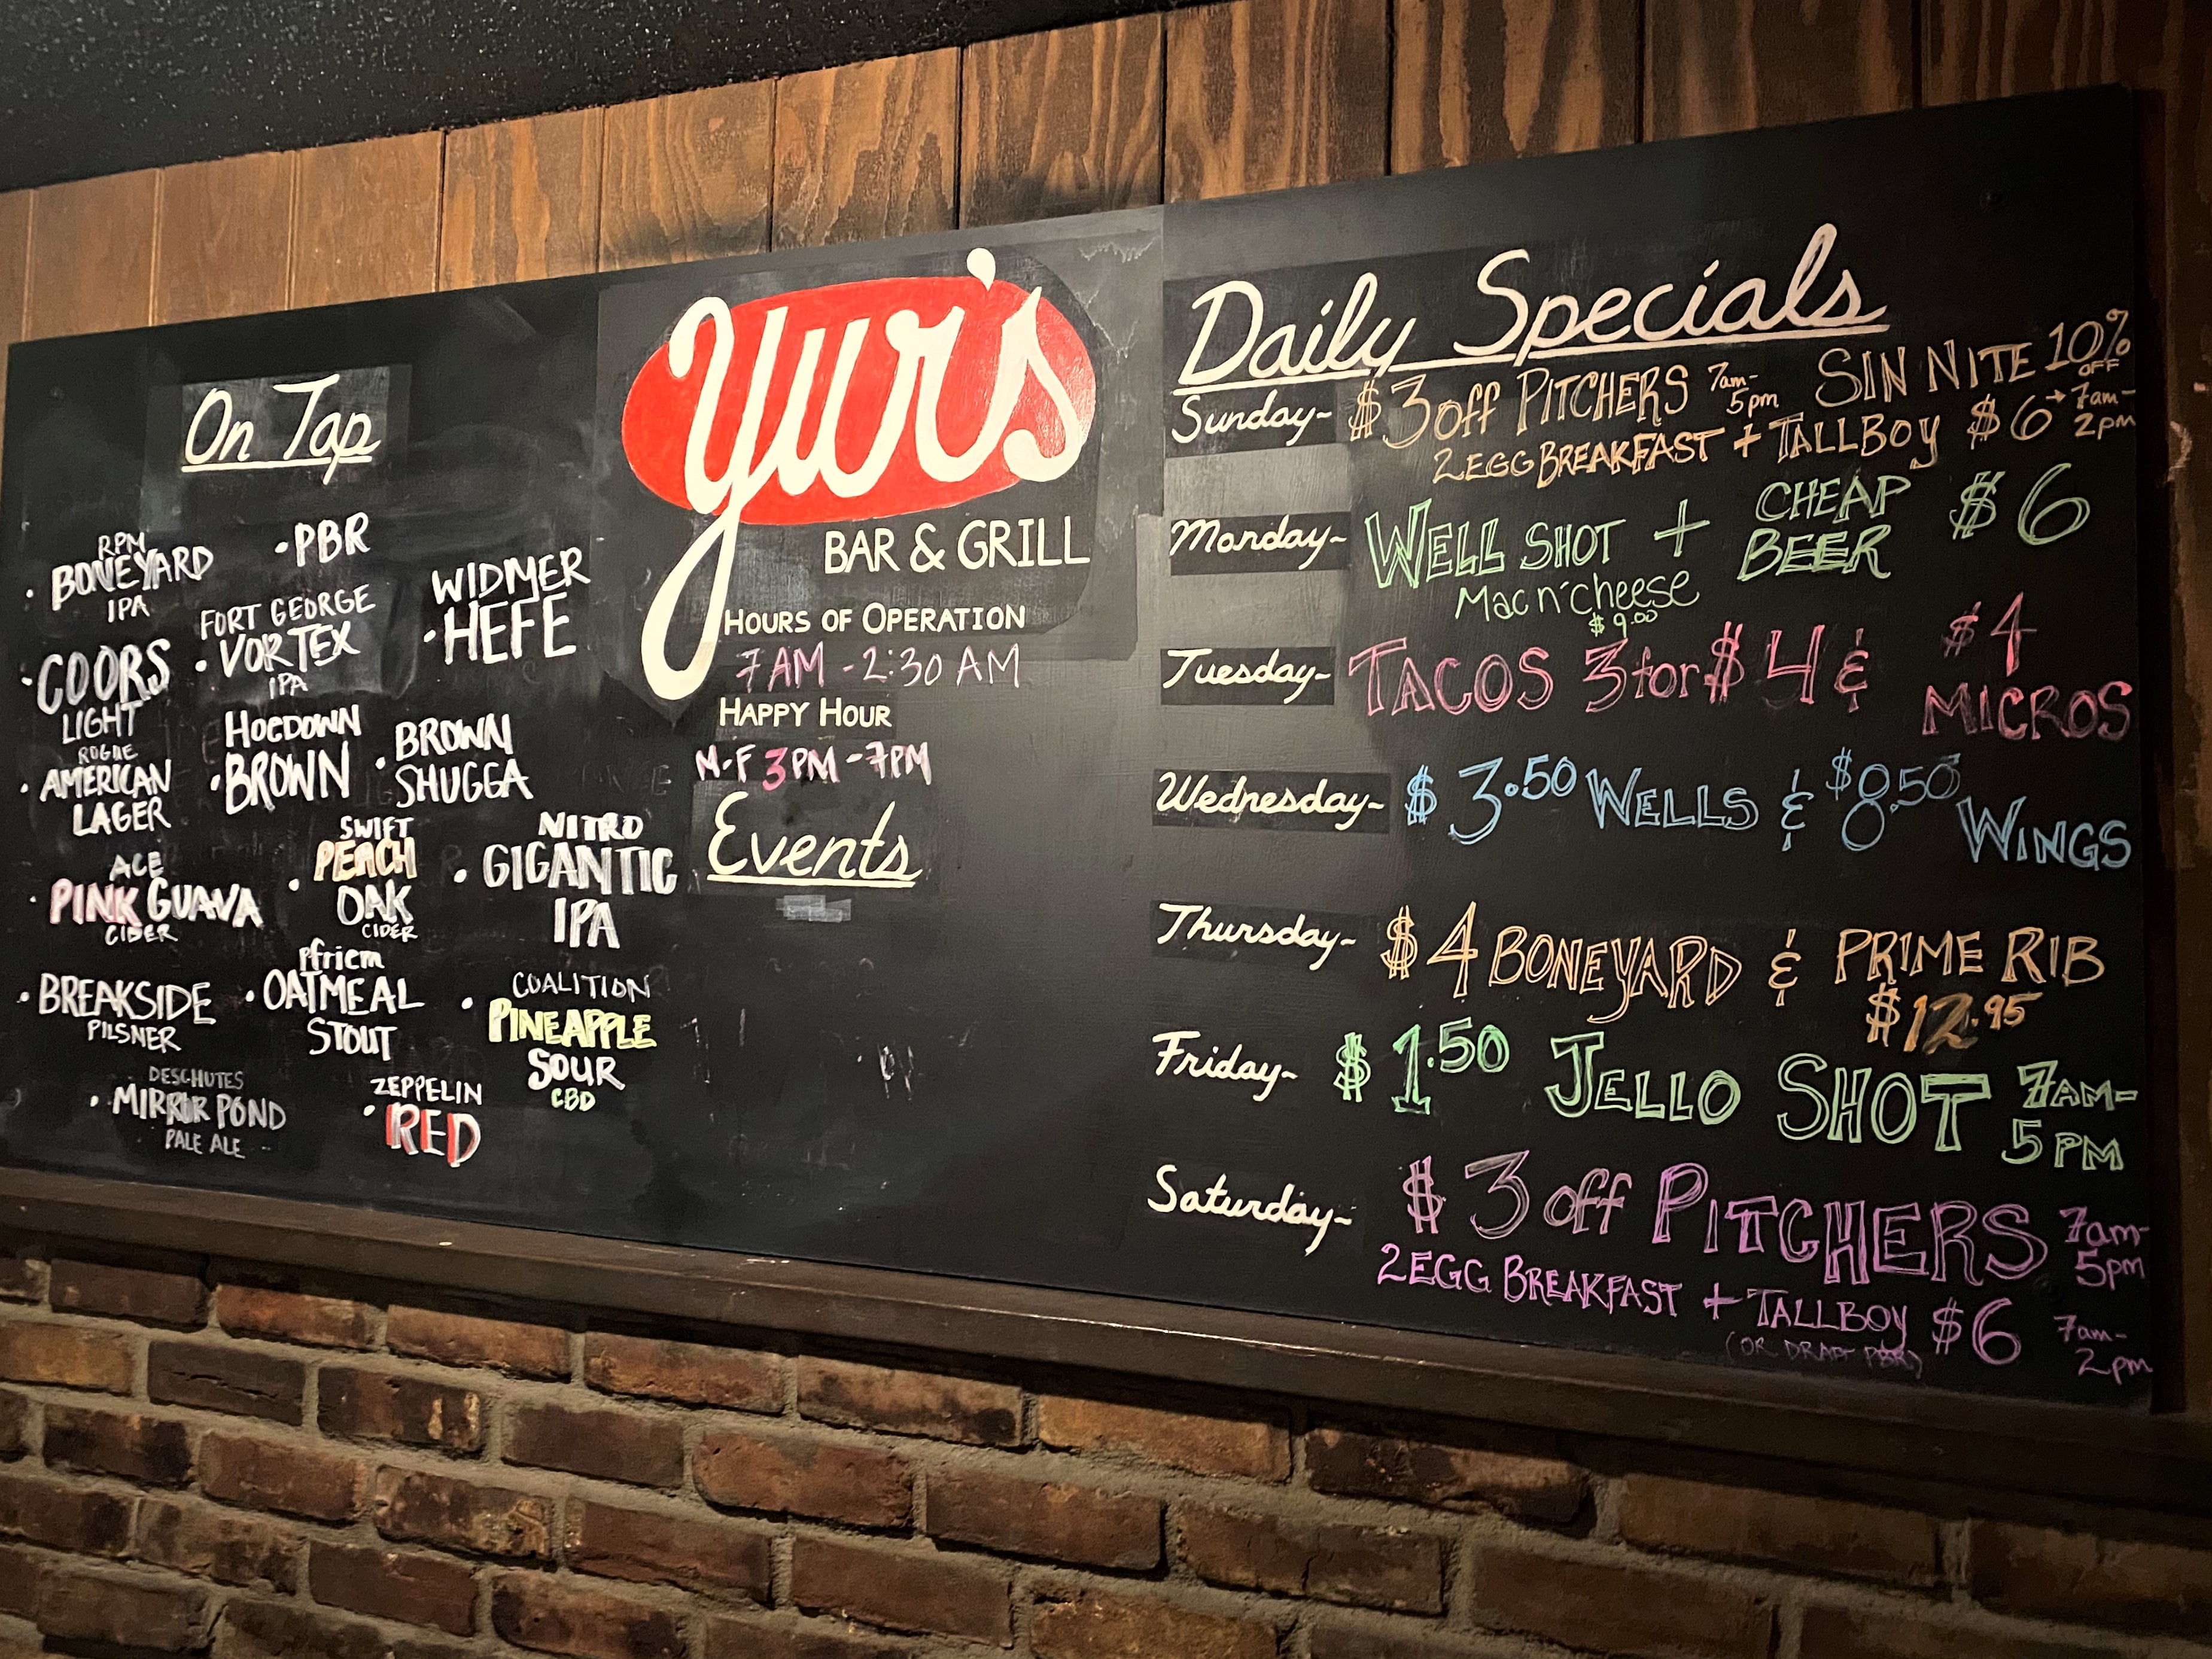 On Tap
RPM
· BONEYARD
IPA
· PBR
WIDMER
· HEFE
FORT GEORGE
· VORTEX
IPA
· COORS
LIGHT
ROGUE
· AMERICAN
LAGER
HOEDOWN
· BROWN
· BROWN
SHUGGA
ACE
· PINK GUAVA
CIDER
SWIFT
· PEACH
OAK
CIDER
NITRO
· GIGANTIC
IPA
· BREAKSIDE
PILSNER
pfriem
· OATMEAL
STOUT
COALITION
· PINEAPPLE
SOUR
CBD
DESCHUTES
· MIRROR POND
PALE ALE
ZEPPELIN
· RED
yur's
BAR & GRILL
HOURS OF OPERATION
7 AM - 2:30 AM
HAPPY HOUR
M-F 3PM - 7PM
Events
Daily Specials
Sunday- $3 off PITCHERS 7am-5pm SIN NITE 10% OFF
2 EGG BREAKFAST + TALLBOY $6 → 7am-2pm
Monday- WELL SHOT + CHEAP BEER $6
Mac n' cheese
$9.00
Tuesday- TACOS 3 for $4 & $4 MICROS
Wednesday- $3.50 WELLS & $8.50 WINGS
Thursday- $4 BONEYARD & PRIME RIB
$12.95
Friday- $1.50 JELLO SHOT 7AM-5PM
Saturday- $3 off PITCHERS 7am-5pm
2 EGG BREAKFAST + TALLBOY $6 7am-2pm
(OR DRAFT PBR)